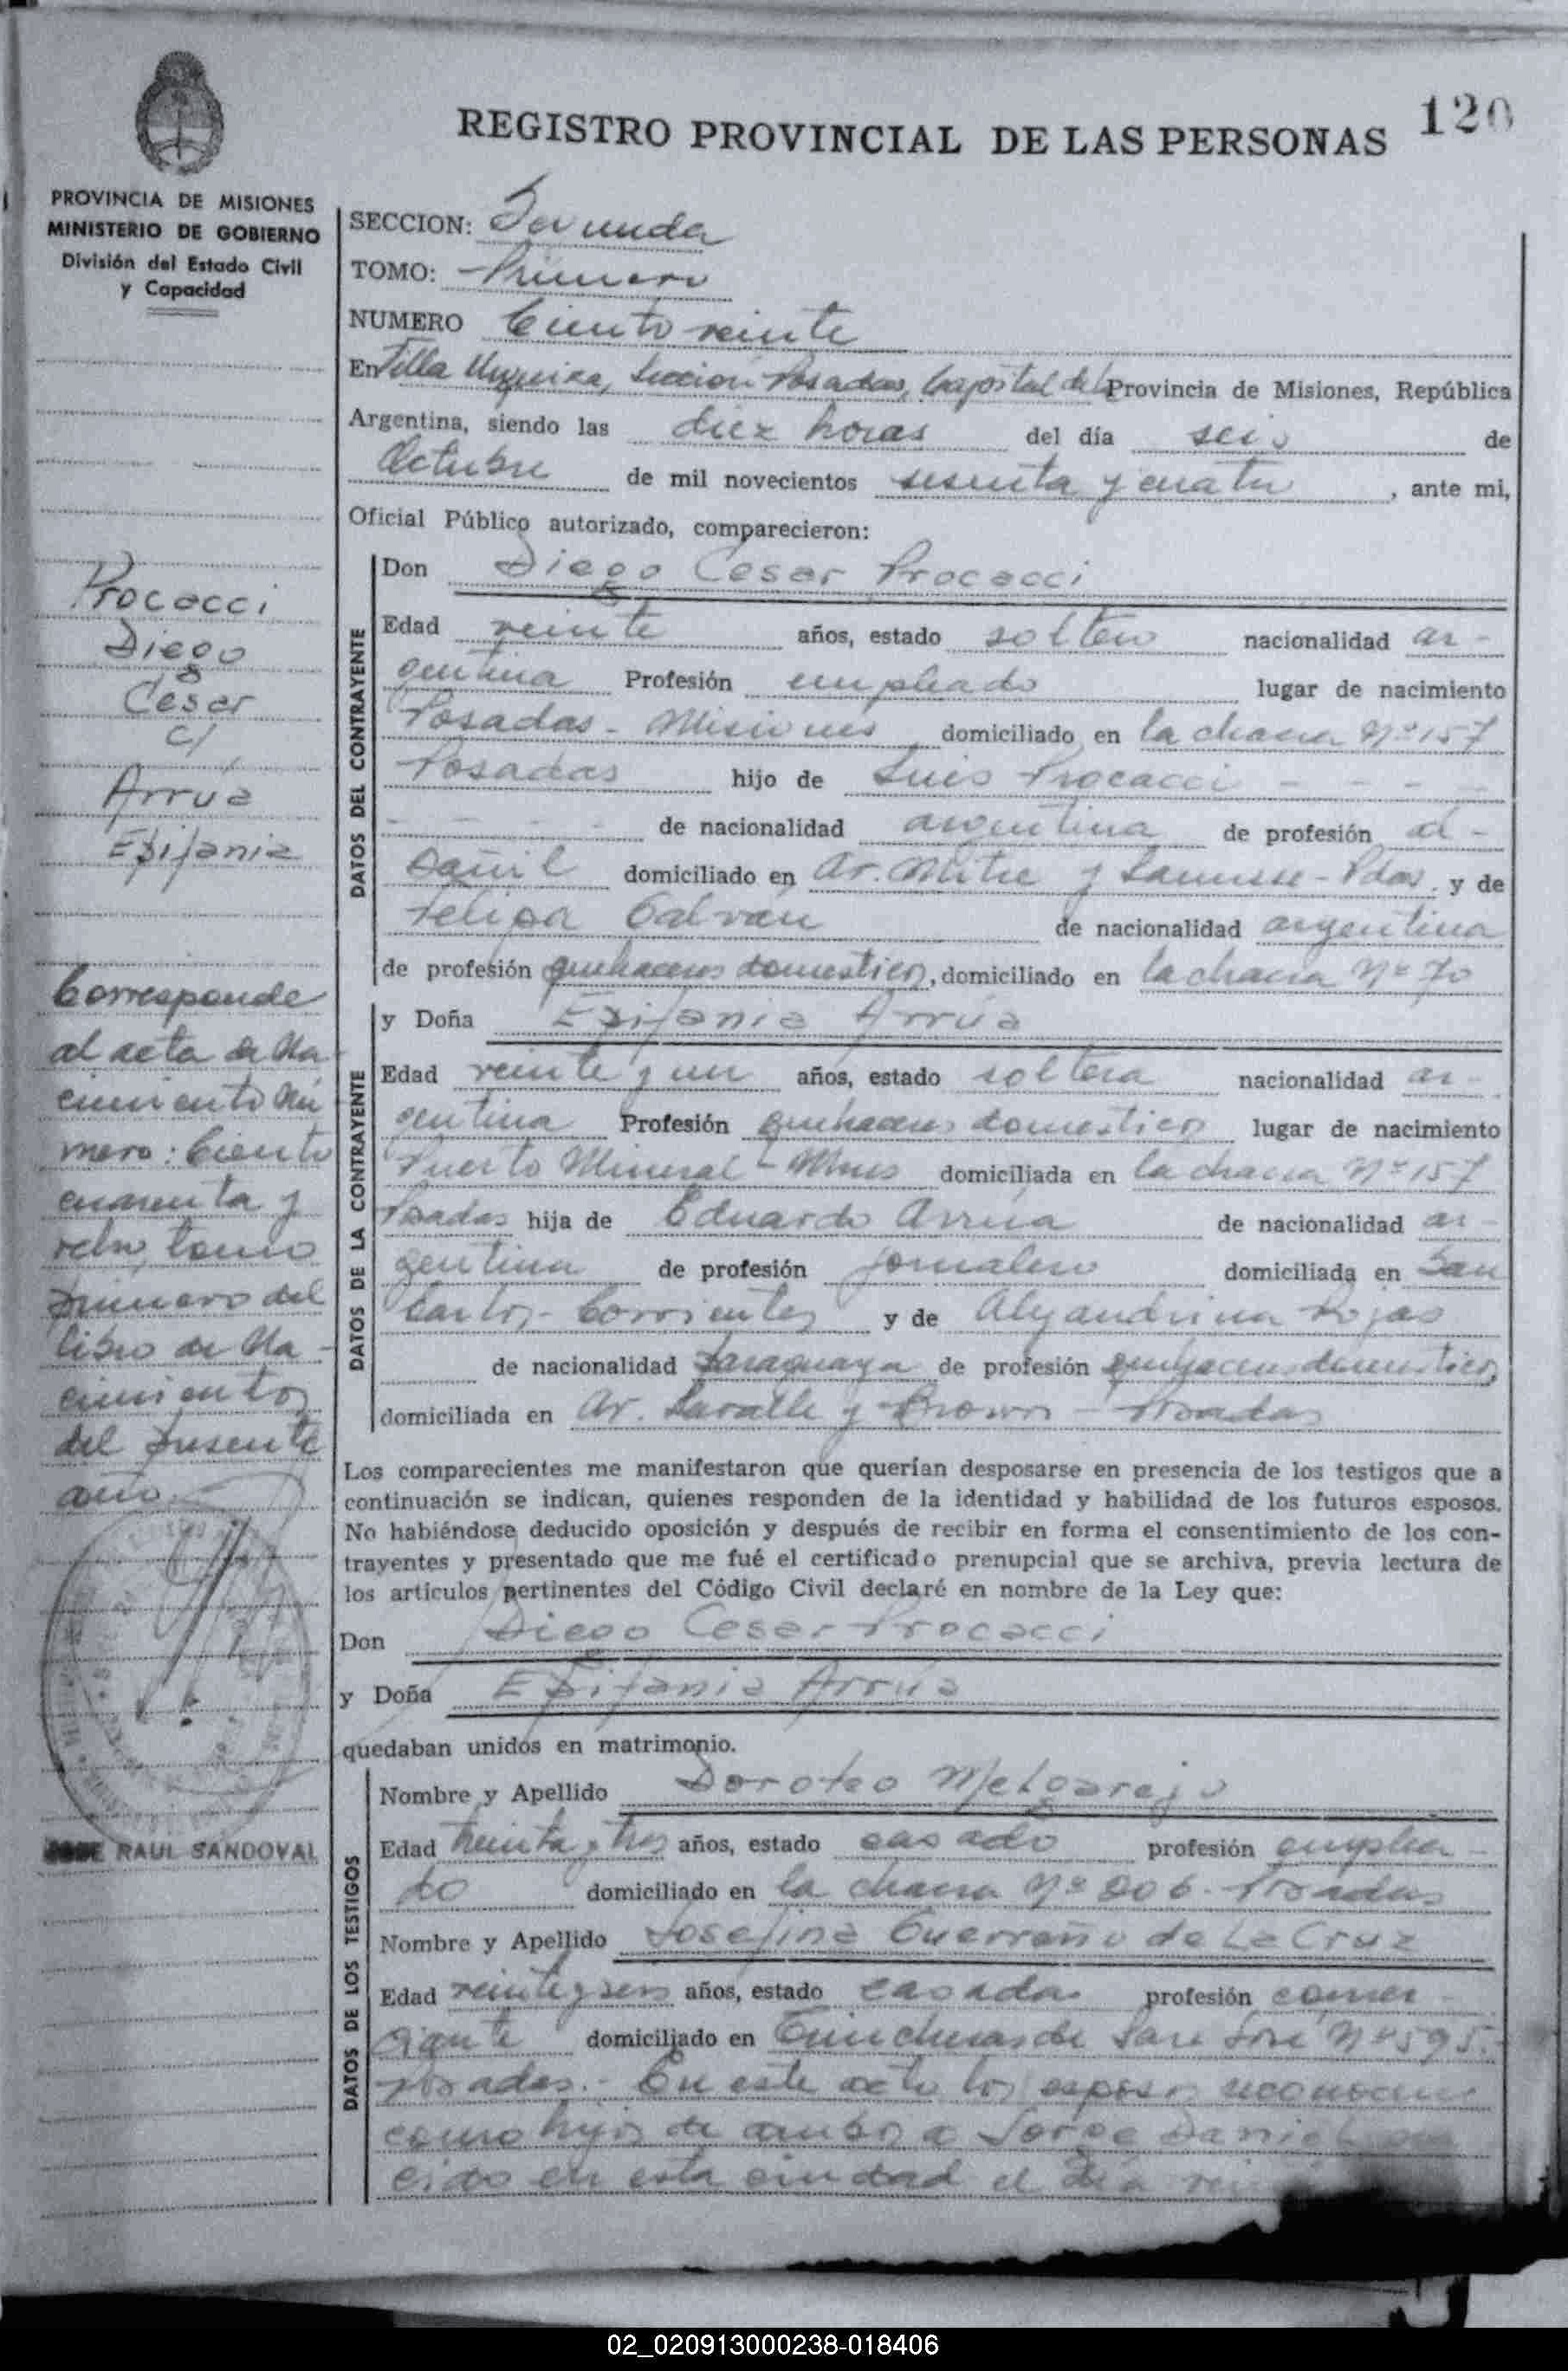 120
REGISTRO PROVINCIAL DE LAS PERSONAS
PROVINCIA DE MISIONES
MINISTERIO DE GOBIERNO
División del Estado Civil
y Capacidad
Procacci
Diego
Cesar
c/
Arrúa
Epifania
Corresponde
al acta de Na
cimiento Nú
mero: Ciento
cuarenta y
ocho, tomo
primero del
libro de Na-
cimientos
del presente
año.
JOSE RAUL SANDOVAL
SECCION: Segunda
TOMO: Primero
NUMERO Ciento veinte
En Villa Urquiza, Sección Posadas, Capital de la Provincia de Misiones, República
Argentina, siendo las diez horas del día seis de
Octubre de mil novecientos sesenta y cuatro, ante mi,
Oficial Público autorizado, comparecieron:
DATOS DEL CONTRAYENTE
Don Diego Cesar Procacci
Edad veinte años, estado soltero nacionalidad ar-
gentina Profesión empleado lugar de nacimiento
Posadas - Misiones domiciliado en la chacra Nº 157
Posadas hijo de Luis Procacci - - - -
- - - - de nacionalidad argentina de profesión al-
bañil domiciliado en Av. Mitre y Lanusse - Pdas. y de
Felipa Galván de nacionalidad argentina
de profesión quehaceres domesticos, domiciliado en la chacra Nº 70
DATOS DE LA CONTRAYENTE
y Doña Epifania Arrúa
Edad veinte y un años, estado soltera nacionalidad ar-
gentina Profesión quehaceres domesticos lugar de nacimiento
Puerto Mineral - Mnes domiciliada en la chacra Nº 157
Posadas hija de Eduardo Arrúa de nacionalidad ar-
gentina de profesión jornalero domiciliada en San
Carlos - Corrientes y de Alejandrina Rojas
de nacionalidad paraguaya de profesión quehaceres domesticos
domiciliada en Av. Lavalle y Brown - Posadas
Los comparecientes me manifestaron que querían desposarse en presencia de los testigos que a
continuación se indican, quienes responden de la identidad y habilidad de los futuros esposos.
No habiéndose deducido oposición y después de recibir en forma el consentimiento de los con-
trayentes y presentado que me fué el certificado prenupcial que se archiva, previa lectura de
los artículos pertinentes del Código Civil declaré en nombre de la Ley que:
Don Diego Cesar Procacci
y Doña Epifania Arrúa
quedaban unidos en matrimonio.
DATOS DE LOS TESTIGOS
Nombre y Apellido Doroteo Melgarejo
Edad treinta y tres años, estado casado profesión emplea-
do domiciliado en la chacra Nº 206 - Posadas
Nombre y Apellido Josefina Guerreño de La Cruz
Edad veinte y seis años, estado casada profesión comer-
ciante domiciliado en Trincheras de San José Nº 595.
Posadas. - En este acto los esposos reconocen
como hijo de ambos a Jorge Daniel
cido en esta ciudad el día
02_020913000238-018406